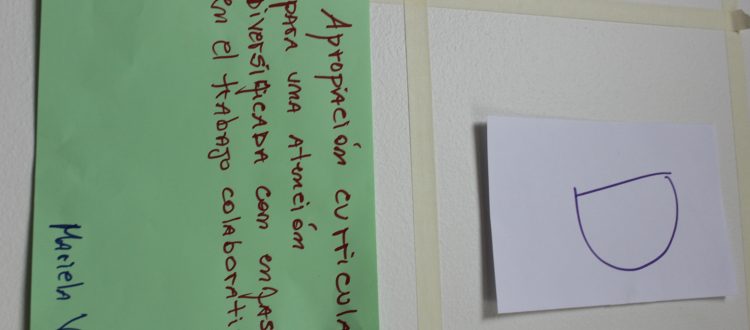 Apropiación curricula
para una atención
Diversificada con enfas
en el trabajo colaborati
Mariela V
D